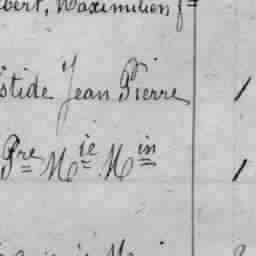 bert, Maximilien f=
istide Jean Pierre /
Pre Mie Min /